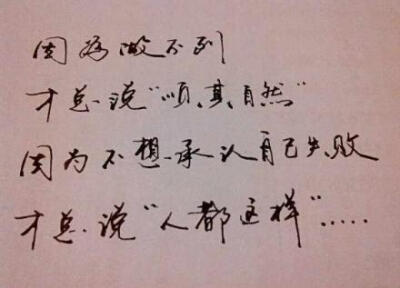 因为做不到
才总说“顺其自然”
因为不想承认自己失败
才总说“人都这样”.....